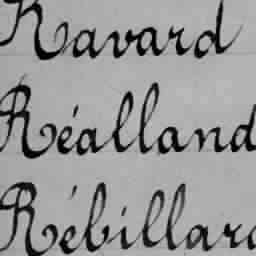 Ravard
Réalland
Rébillard